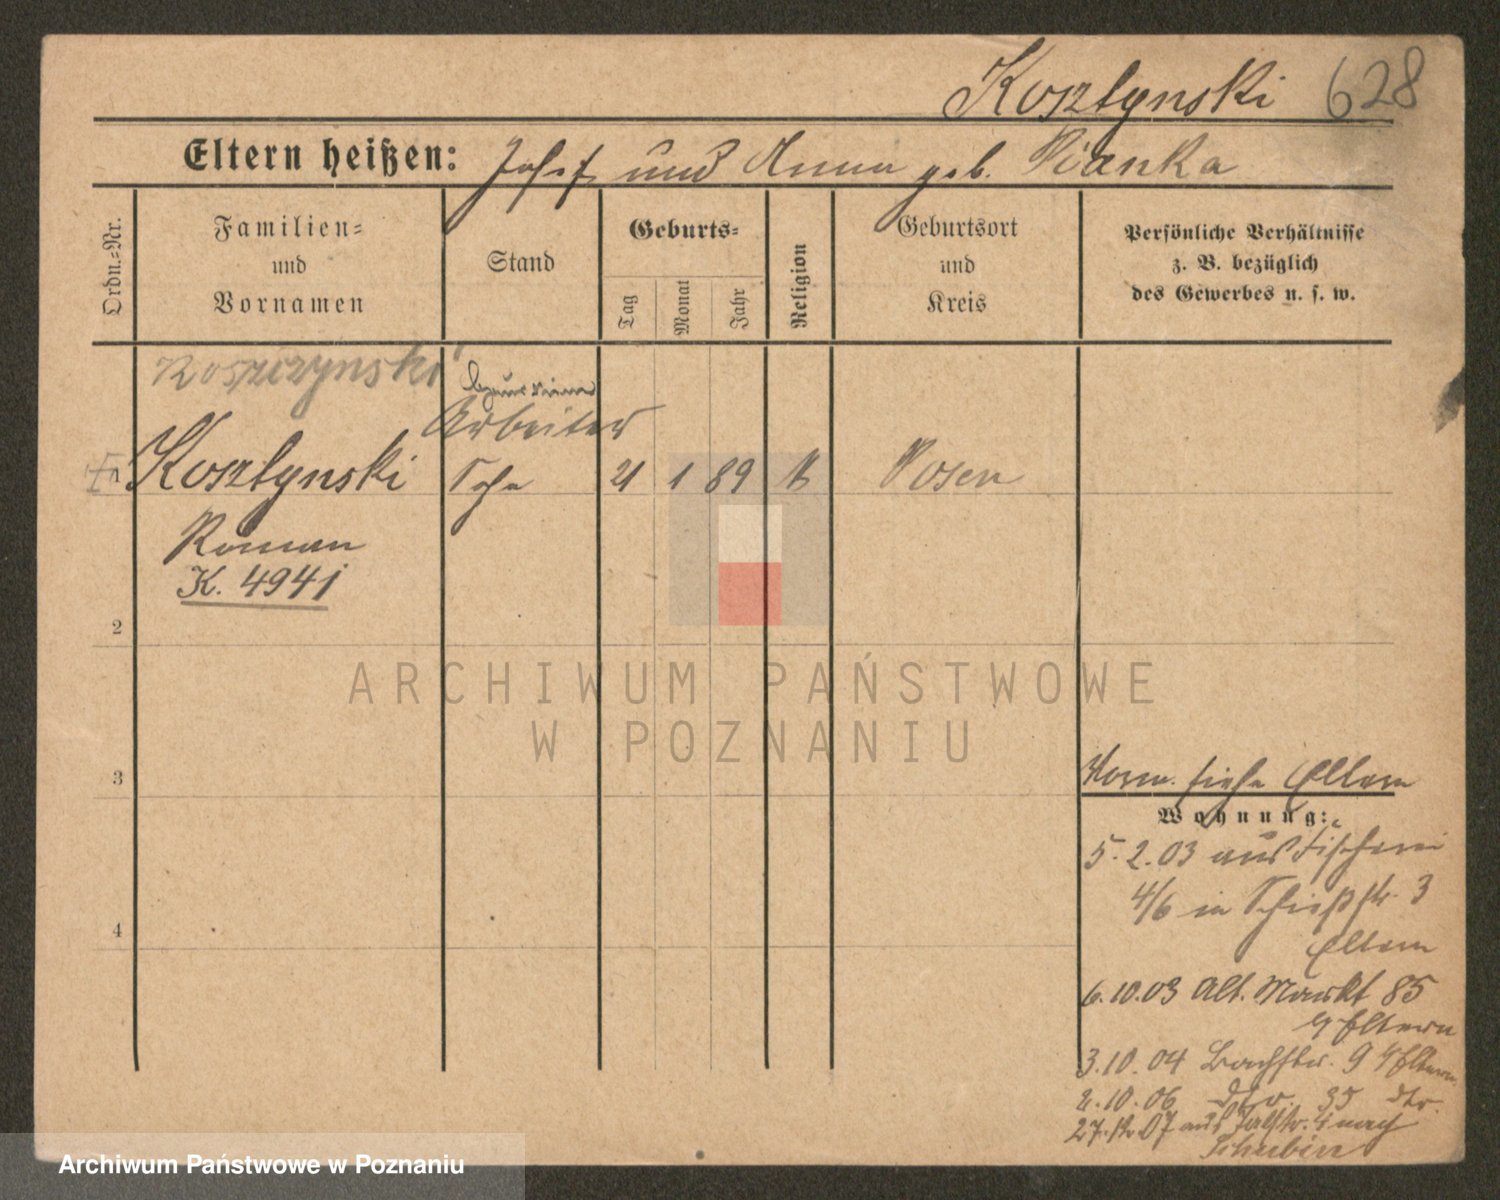 Kosztynski 628
Eltern heißen: Josef und Anna geb. Pianka
Ordn.-Nr.
Familien-
und
Vornamen
Stand
Geburts-
Tag
Monat
Jahr
Religion
Geburtsort
und
Kreis
Persönliche Verhältnisse
z. B. bezüglich
des Gewerbes u. s. w.
Koszczynski
Arbeiter
Kosztynski
21 1 89 K Posen
Roman
K. 4941
2
3
4
ARCHIWUM PAŃSTWOWE
W POZNANIU
siehe Eltern
Wohnung:
5.2.03 aus Fischerei
4/6 in Schießstr. 3
Eltern
6.10.03 Alt. Markt 85
b/Eltern
3.10.04 Bachstr. 9 b/Eltern
2.10.06 dto. 35 dto.
27. 07 aus 4 nach
Schubin
Archiwum Państwowe w Poznaniu